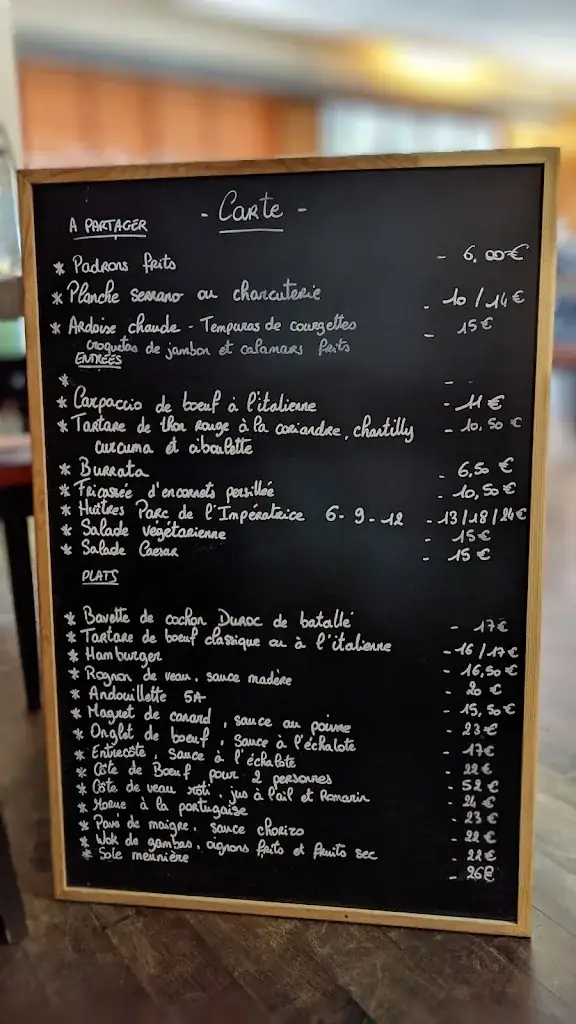 - Carte -
A PARTAGER
* Padrons frits - 6,00€
* Planche serrano ou charcuterie - 10/14€
* Ardoise chaude - Tempuras de courgettes - 15€
croquetas de jambon et calamars frits
ENTRÉES
* - -
* Carpaccio de bœuf à l'italienne - 11€
* Tartare de thon rouge à la coriandre, chantilly - 10,50€
curcuma et ciboulette
* Burrata - 6,50€
* Fricassée d'encornets persillée - 10,50€
* Huîtres Parc de l'Impératrice 6-9-12 - 13/18/24€
* Salade végétarienne - 15€
* Salade Caesar - 15€
PLATS
* Bavette de cochon Duroc de batallé - 17€
* Tartare de bœuf classique ou à l'italienne - 16/17€
* Hamburger - 16,50€
* Rognon de veau, sauce madère - 20€
* Andouillette 5A - 15,50€
* Magret de canard, sauce au poivre - 23€
* Onglet de bœuf, sauce à l'échalote - 17€
* Entrecôte, sauce à l'échalote - 22€
* Côte de Bœuf pour 2 personnes - 52€
* Côte de veau rôti, jus à l'ail et Romarin - 24€
* Morue à la portugaise - 23€
* Pavé de maigre, sauce chorizo - 22€
* Wok de gambas, oignons frits et fruits sec - 22€
* Sole meunière - 26€